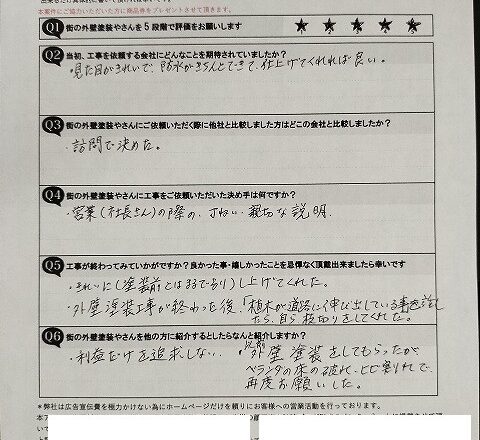 本案件にご協力いただいた方に商品券をプレゼントさせて頂きます。
Q1 街の外壁塗装やさんを5段階で評価をお願いします ★ ★ ★ ★ ★
Q2 当初、工事を依頼する会社にどんなことを期待されていましたか？
・見た目がきれいで、防水がきちんとできて、仕上げてくれれば良い。
Q3 街の外壁塗装やさんにご依頼いただく際に他社と比較しました方はどこの会社と比較しましたか？
・訪問で決めた。
Q4 街の外壁塗装やさんに工事をご依頼いただいた決め手は何ですか？
・営業(社長さん)の際の、ていねい、親切な説明
Q5 工事が終わってみていかがですか？良かった事・嬉しかったことを忌憚なく頂戴出来ましたら幸いです
・きれいに(塗装前とはまるで有り)し上げてくれた。
・外壁塗装工事が終わった後、「植木が道路に伸び出している事を話したら、自ら枝切りをしてくれた。
Q6 街の外壁塗装やさんを他の方に紹介するとしたらなんと紹介しますか？
・利益だけを追求しない…
・以前外壁塗装をしてもらったが、
ベランダの床の破れ、ヒビ割れで、
再度お願いした。
＊弊社は広告宣伝費を極力かけない為にホームページだけを頼りにお客様への営業活動を行っております。